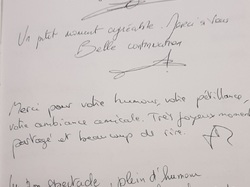 Un petit moment agréable. Merci à vous
Belle continuation
Merci pour votre humour, votre pétillance,
votre ambiance amicale. Très joyeux moment
partagé et beaucoup de rire.
spectacle plein d'humour